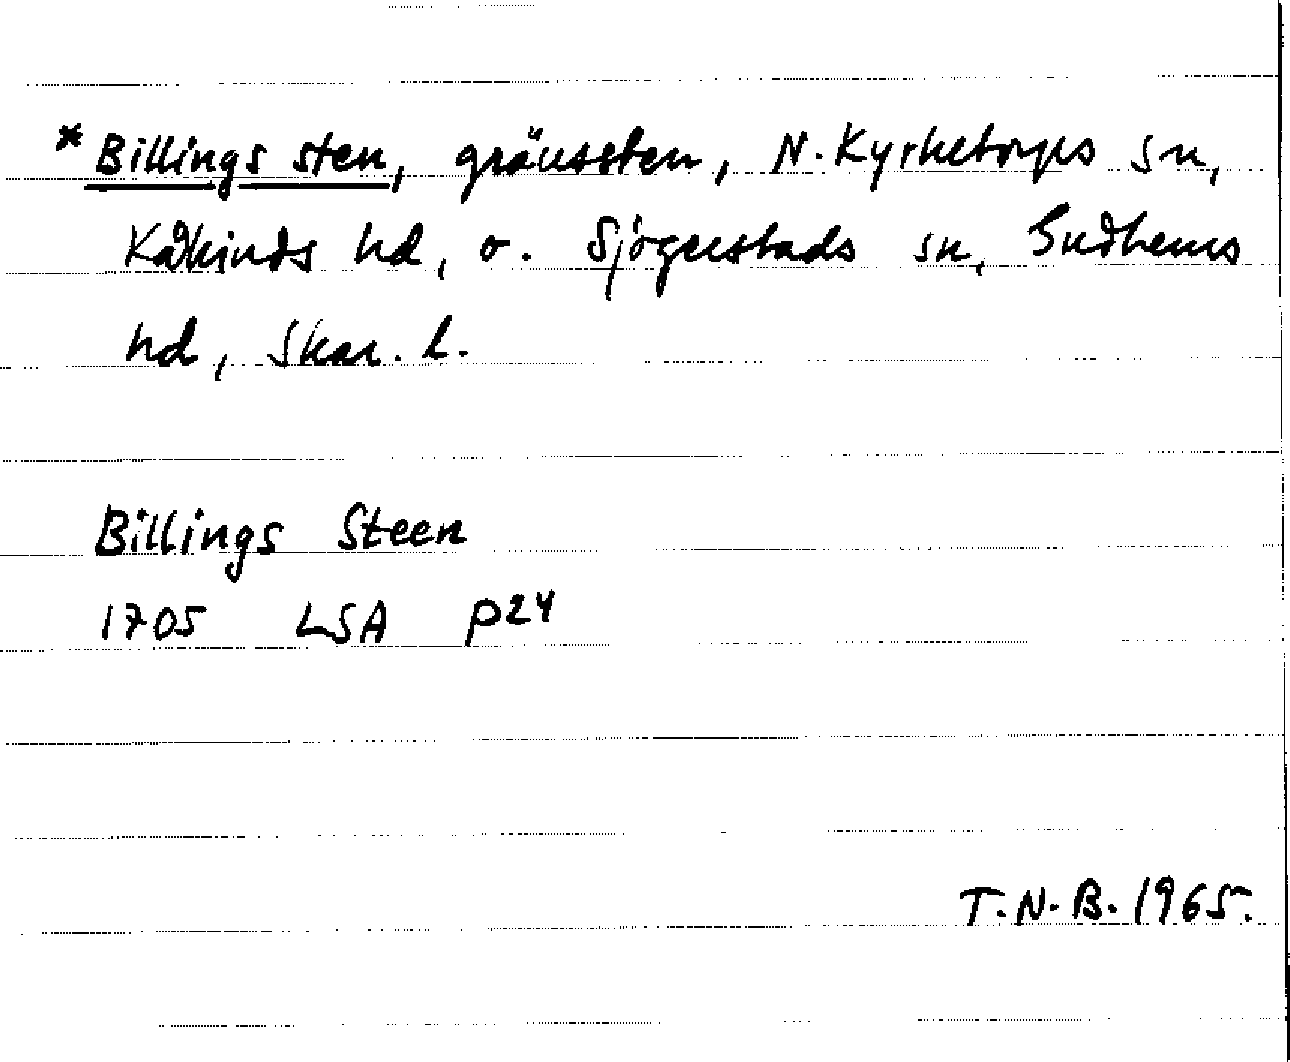 * Billings sten, gränssten, N. Kyrketorps sn,
Kåkinds hd, o. Sjögerstads sn, Gudhems
hd, Skar. l.
Billings Steen
1705 LSA P24
T.N.B. 1965.